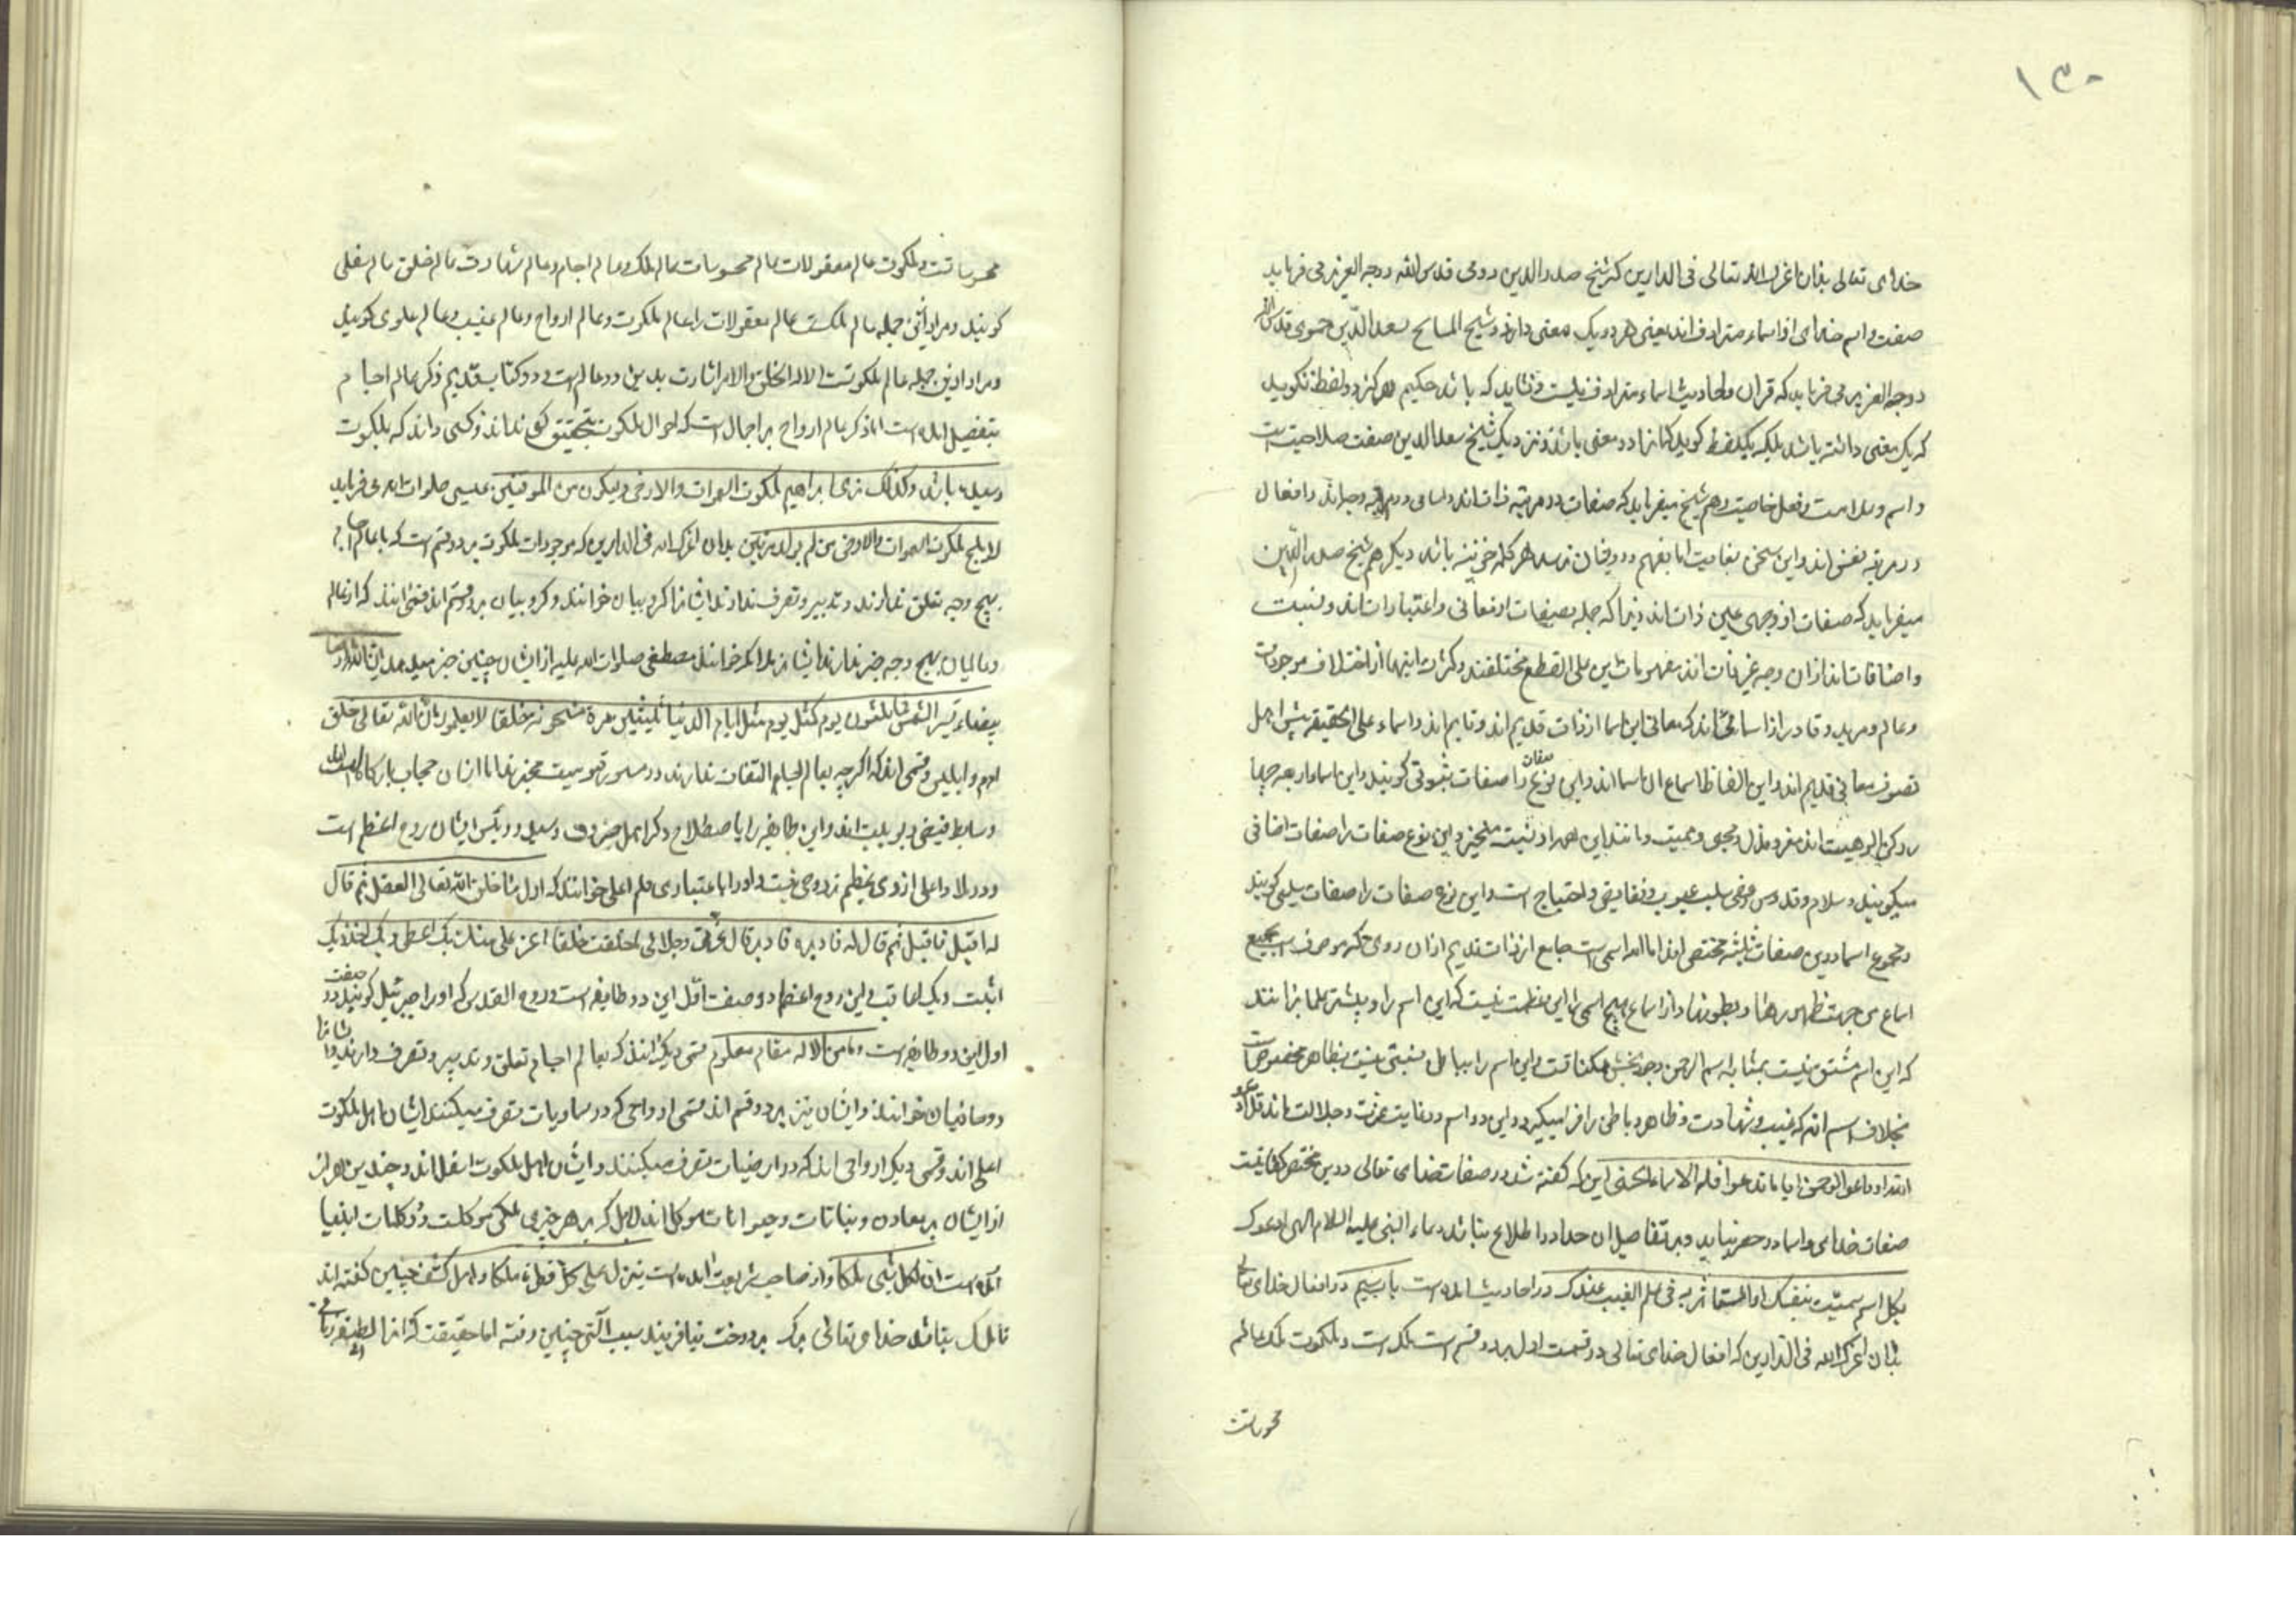 ۱۳۰
خدای تعالی بدان اعزک الله تعالی فی الدارین که شیخ صدر الدین رومی قدس الله روحه العزیز می فرماید
صفت و اسم خدای از اسماء مترادف اند یعنی هر دو یک معنی دارند و شیخ المشایخ سعد الدین حموی قدس الله
روحه العزیز می فرماید که قرآن و احادیث اسماء مترادف نیست و نشاید که باشد حکیم هرگز دو لفظ نگوید
که یک معنی داشته باشد بلکه یک لفظ گوید که آنرا دو معنی باشد و نزدیک شیخ سعد الدین صفت صلاحیت است
و اسم و فعل خاصیت و هم شیخ میفرماید که صفات در مرتبه ذات اند و اسامی در مرتبه وجه اند و افعال
در مرتبه نفس اند و این سخن بغایت اما بفهم نرسد هر که باشد دیگر هم شیخ صدر الدین
میفرماید که صفات از وجهی عین ذات اند زیرا که جمله و اعتبارات اند و نسبت
و اضافات اند از آن وجه غیر ذات اند مفهومات این علی القطع مختلفند و کثرت اینها از اختلاف موجودات
و عالم و مرید و قادر از اسامی اند که معانی این اسما از ذات قدیم اند و قایم اند و اسماء علی الحقیقه پیش اهل
تصوف معانی قدیم اند و این الفاظ اسماء آن اسما اند و این نوع صفات را صفات ثبوتی گویند و این اسما
رکن الوهیت اند معز و مذل و محیی و ممیت و مانند این و این نوع صفات را صفات اضافی
میگویند و سلام و قدوس سلب عیوب و نقایص و احتیاج است و این نوع صفات را صفات سلبی گویند
و مجموع اسما درین صفات ثلثه مختصر اند اما الله اسمی است جامع از ذات قدیم از آن روی که موصوف است بجمیع
اسماء من جهت ظهورها و بطونها و از اسماء هیچ اسمی را این عظمت نیست که این اسم را و بیشتر علما برانند
که این اسم مشتق نیست بمثابه اسم الرحمن وجود بخش ممکنات است و این اسم را نسبتی نیست بظاهر مخصوصا
بخلاف اسم الله که غیب و شهادت و ظاهر و باطن را فرا میگیرد و این دو اسم در غایت عزت و جلالت اند قل ادعو
الله او ادعوا الرحمن ایا ما تدعوا فله الاسماء الحسنی این که گفته شد در صفات خدای تعالی درین مختصر کفایت
صفات خدای و اسما در حصر نیاید و بر تفاصیل آن احد را اطلاع نباشد دعاء النبی علیه السلام الهی ادعوک
بکل اسم سمیت بنفسک او استاثرت به فی علم الغیب عندک در احادیث آمده است باب سیم در افعال خدای تعالی
بدان اعزک الله فی الدارین که افعال خدای تعالی در قسمت اول بر دو قسم است ملک است و ملکوت ملک عالم
محسوسات
محسوسات است و ملکوت عالم معقولات عالم محسوسات عالم ملک و عالم اجسام و عالم شهادت عالم خلق عالم سفلی
گویند و مراد ازین جمله عالم ملکست و عالم معقولات را عالم ملکوت و عالم ارواح و عالم غیب و عالم علوی گویند
و مراد ازین جمله عالم ملکوتست الا له الخلق والامر اشارت بدین دو عالم است و در کتاب قدیم ذکر عالم اجسام
بتفصیل آمده است اما ذکر عالم ارواح بر اجمال است که احوال ملکوت بتحقیق کس نداند و کسی داند که بملکوت
رسیده باشد وکذلک نری ابراهیم ملکوت السموات والارض ولیکون من الموقنین عیسی صلوات الله می فرماید
لا یلج ملکوت السموات والارض من لم یولد مرتین بدان اعزک الله فی الدارین که موجودات ملکوت بر دو قسم است که با عالم اجسام
بهیچ وجه تعلق ندارند و تدبیر و تصرف ندارند ایشانرا کروبیان خوانند و کروبیان بر دو قسم اند قسمی انند که از عالم
و عالمیان بهیچ وجه خبر ندارند ایشانرا ملائکه خوانند مصطفی صلوات الله علیه از ایشان چنین خبر میدهد ان لله ارضا
بیضاء تسیر الشمس فیها ثلثون یوم کمثل یوم مثل ایام الدنیا ثلثین مرة مشحونة خلقا لا یعلمون ان الله تعالی خلق
ادم و ابلیس و قسمی اند که اگرچه بعالم اجسام التفات ندارند در قیومیت متحیرند اما ایشان حجاب بارگاه الوهیت
وسایط فیض ربوبیت اند و این طایفه را باصطلاح دیگر اهل جبروت و سید و رئیس ایشان روح اعظم است
و در ملاء اعلی از وی عظیم تر روحی نیست و او را باعتباری قلم اعلی خوانند که اول ما خلق الله تعالی العقل ثم قال
له اقبل فاقبل ثم قال له فادبر فادبر قال عزتی وجلالی ما خلقت خلقا اعز علی منک بک اعطی وبک اخذ وبک
اثبت وبک اعاقب و این روح اعظم در صفت اول این دو طایفه است و روح القدس که او را جبرئیل گویند در صفت
اول این دو طایفه است وما منا الا له مقام معلوم قسمی دیگر انند که بعالم اجسام تعلق و تدبیر و تصرف دارند و ایشانرا
روحانیان خوانند و ایشان نیز بر دو قسم اند قسمی ارواحی که در سماویات تصرف میکنند ایشان اهل ملکوت
اعلی اند و قسمی دیگر ارواحی اند که در ارضیات تصرف میکنند و ایشان اهل ملکوت اسفل اند و چندین هزار
از ایشان بر معادن و نباتات و حیوانات موکل اند بل که بر هر چیزی ملکی موکلست و در کلمات انبیا
آمده است ان لکل شیء ملکا و از صاحب شریعت آمده است ینزل مع کل قطرة ملکا و اهل کشف چنین گفته اند
تا ملک نباشد خدای تعالی برگ بر درخت نیافریند سبب آلتی چنین رفته اما حقیقت که انرا لطیفه ربانی